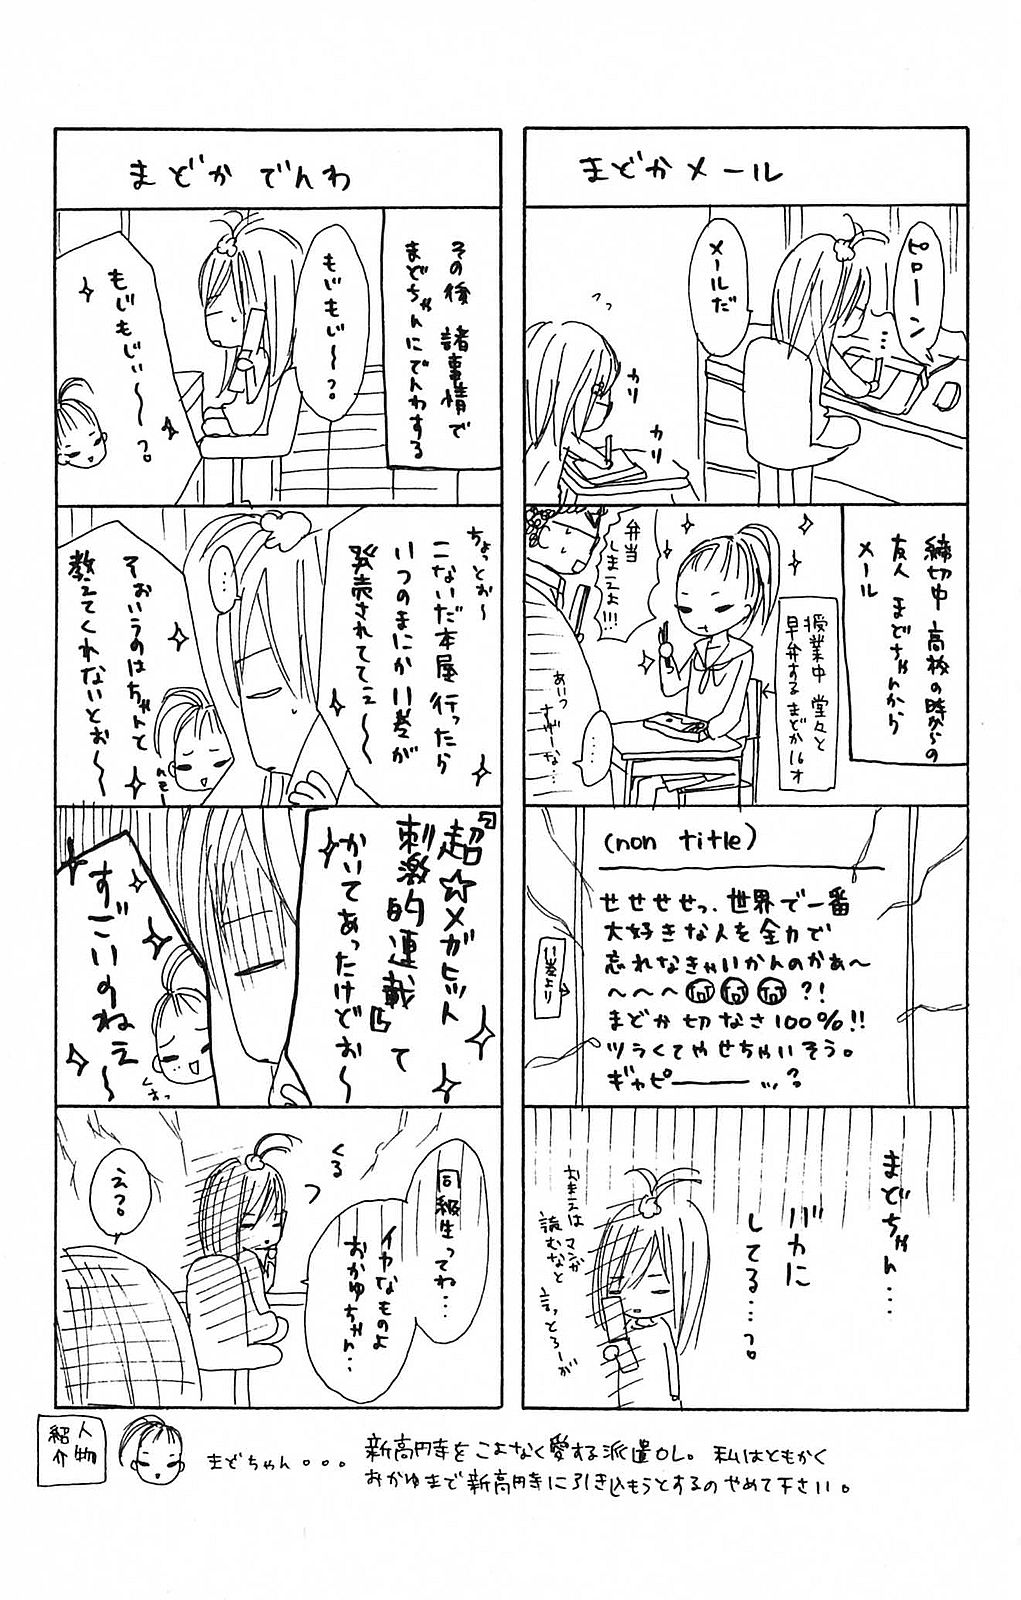 まどかメール
ピローン
メールだ
カリ
カリ
締切中 高校の時からの
友人 まどちゃんから
メール
授業中 堂々と
早弁する まどか16才
弁当
しまえよ!!!
あいつ
ナザーな…
……
(non title)
せせせせっ、世界で一番
大好きな人を全力で
忘れなきゃいかんのかあ〜
〜〜〜 ?!
まどか切なさ100%!!
ツラくてやせちゃいそう。
ギャピ――― …?
11巻より
まどちゃん…
バカに
してる…?
おまえは
マンガ
読むなと
言っとろーが
まどか でんわ
その後 諸事情で
まどちゃんにでんわする
もしもし〜?
もしもしぃ〜?
ちょっとぉ〜
こないだ本屋行ったら
いつのまにか11巻が
発売されててぇ〜
……
そおいうのはちゃんと
教えてくれないとぉ〜
『超☆メガヒット
刺激的連載』て
かいてあったけどぉ〜
すごいのねぇ〜
くすっ
同級生ってね…
イヤなものよ
おかゆちゃん…
くる
え?
人物
紹介
まどちゃん。。。新高円寺をこよなく愛する派遣OL。私はともかく
おかゆまで新高円寺に引き込もうとするのやめて下さい。